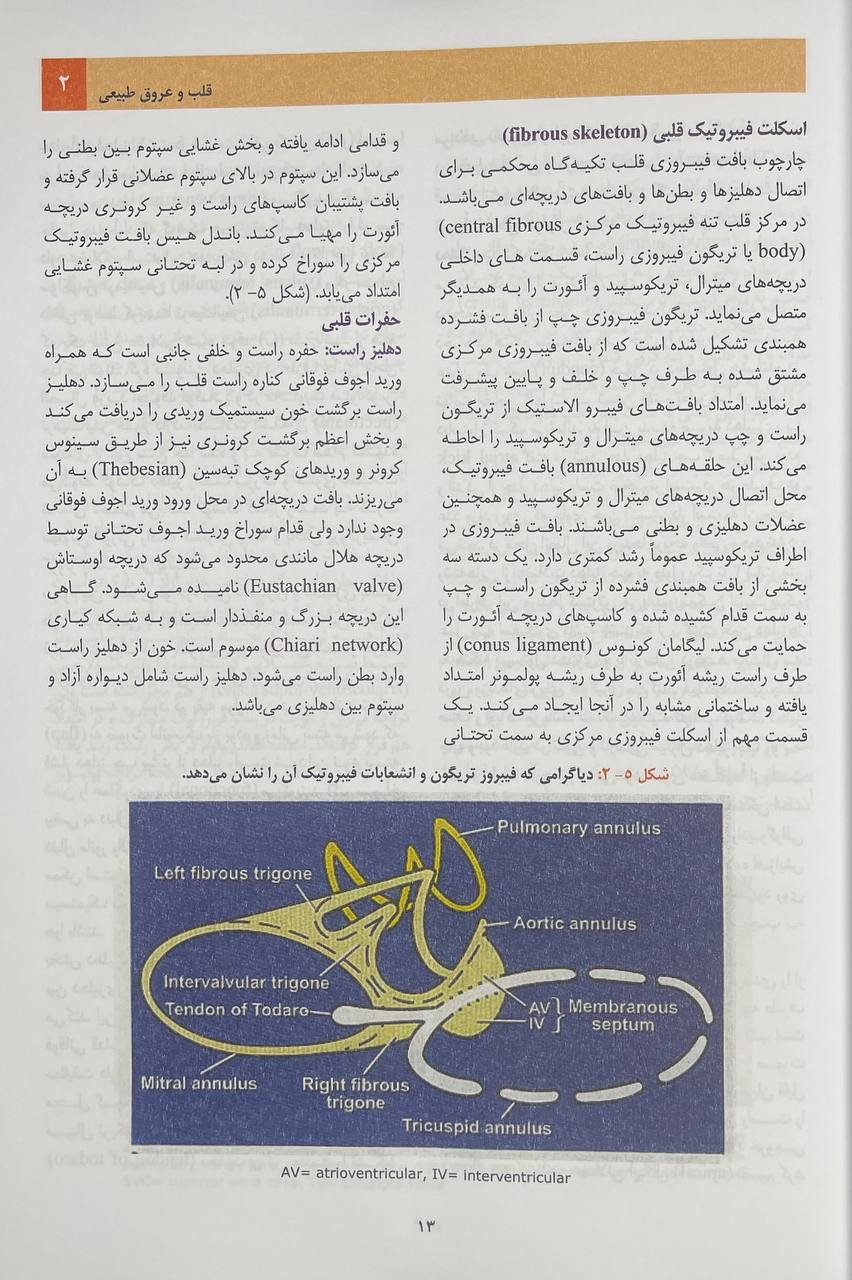 ۲
قلب و عروق طبیعی
اسکلت فیبروتیک قلبی (fibrous skeleton)
چارچوب بافت فیبروزی قلب تکیه‌گاه محکمی برای
اتصال دهلیزها و بطن‌ها و بافت‌های دریچه‌ای می‌باشد.
در مرکز قلب تنه فیبروتیک مرکزی (central fibrous
body) یا تریگون فیبروزی راست، قسمت های داخلی
دریچه‌های میترال، تریکوسپید و آئورت را به همدیگر
متصل می‌نماید. تریگون فیبروزی چپ از بافت فشرده
همبندی تشکیل شده است که از بافت فیبروزی مرکزی
مشتق شده به طرف چپ و خلف و پایین پیشرفت
می‌نماید. امتداد بافت‌های فیبرو الاستیک از تریگون
راست و چپ دریچه‌های میترال و تریکوسپید را احاطه
می‌کند. این حلقه‌های (annulous) بافت فیبروتیک،
محل اتصال دریچه‌های میترال و تریکوسپید و همچنین
عضلات دهلیزی و بطنی می‌باشند. بافت فیبروزی در
اطراف تریکوسپید عموماً رشد کمتری دارد. یک دسته سه
بخشی از بافت همبندی فشرده از تریگون راست و چپ
به سمت قدام کشیده شده و کاسپ‌های دریچه آئورت را
حمایت می‌کند. لیگامان کونوس (conus ligament) از
طرف راست ریشه آئورت به طرف ریشه پولمونر امتداد
یافته و ساختمانی مشابه را در آنجا ایجاد می‌کند. یک
قسمت مهم از اسکلت فیبروزی مرکزی به سمت تحتانی
و قدامی ادامه یافته و بخش غشایی سپتوم بین بطنی را
می‌سازد. این سپتوم در بالای سپتوم عضلانی قرار گرفته و
بافت پشتیبان کاسپ‌های راست و غیر کرونری دریچه
آئورت را مهیا می‌کند. باندل هیس بافت فیبروتیک
مرکزی را سوراخ کرده و در لبه تحتانی سپتوم غشایی
امتداد می‌یابد. (شکل ۵- ۲).
حفرات قلبی
دهلیز راست: حفره راست و خلفی جانبی است که همراه
ورید اجوف فوقانی کناره راست قلب را می‌سازد. دهلیز
راست برگشت خون سیستمیک وریدی را دریافت می‌کند
و بخش اعظم برگشت کرونری نیز از طریق سینوس
کرونر و وریدهای کوچک تبه‌سین (Thebesian) به آن
می‌ریزند. بافت دریچه‌ای در محل ورود ورید اجوف فوقانی
وجود ندارد ولی قدام سوراخ ورید اجوف تحتانی توسط
دریچه هلال مانندی محدود می‌شود که دریچه اوستاش
(Eustachian valve) نامیده می‌شود. گاهی
این دریچه بزرگ و منفذدار است و به شبکه کیاری
(Chiari network) موسوم است. خون از دهلیز راست
وارد بطن راست می‌شود. دهلیز راست شامل دیواره آزاد و
سپتوم بین دهلیزی می‌باشد.
شکل ۵- ۲: دیاگرامی که فیبروز تریگون و انشعابات فیبروتیک آن را نشان می‌دهد.
Pulmonary annulus
Left fibrous trigone
Aortic annulus
Intervalvular trigone
Tendon of Todaro
AV
IV
Membranous
septum
Mitral annulus
Right fibrous
trigone
Tricuspid annulus
AV= atrioventricular, IV= interventricular
۱۳